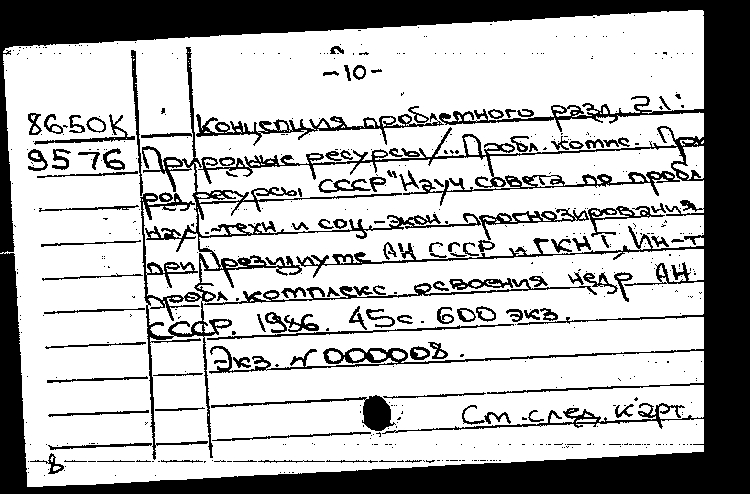 -10-
86-50К Концепция проблемного разд. 2.1:
9576 Природные ресурсы/...Пробл. комис. "При
род. ресурсы СССР" Науч. совета по пробл
науч.-техн. и соц.-экон. прогнозирования
при Президиуме АН СССР и ГКНТ, Ин-т
пробл. комплекс. освоения недр АН
СССР. 1986. 45с. 600 экз.
Экз. N 000008.
См. след. карт.
8